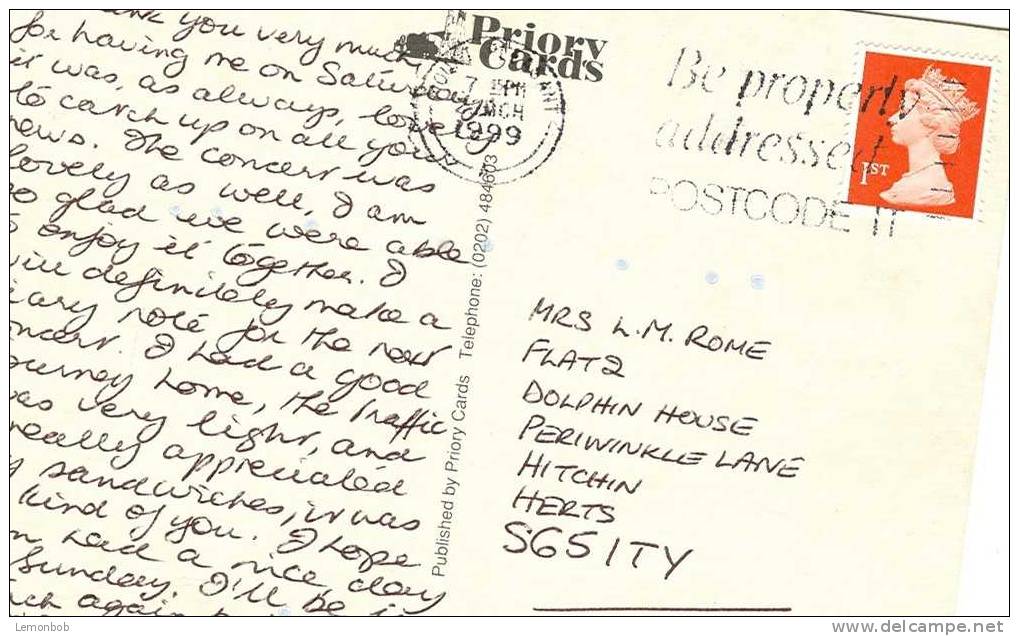 ank you very much
for having me on Saturday,
it was, as always, lovely
to catch up on all your
news. The concert was
lovely as well, I am
so glad we were able
to enjoy it together. I
will definitely make a
diary note for the next
concert. I had a good
journey home, the traffic
was very light, and
really appreciated
sandwiches, it was
kind of you. I hope
had a nice day
Sunday. I'll be i
again
Priory
Cards
7 PM
MCH
1999
Be properly
addressed
POSTCODE IT
1ST
Published by Priory Cards Telephone: (0202) 484603
MRS L.M. ROME
FLAT 2
DOLPHIN HOUSE
PERIWINKLE LANE
HITCHIN
HERTS
SG5 1TY
Lemonbob
delcampe.net